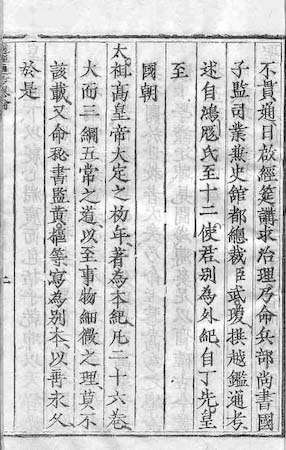 不貫通日啟經筵講求治理乃命兵部尚書國
子監司業兼史館都總裁臣武瓊撰越鑑通考
述自鴻厖氏至十二使君別為外紀自丁先皇
至
國朝
太祖高皇帝大定之初年著為本紀凡二十六卷
大而三綱五常之道以至事物細微之理莫不
該載又命秘書監黃樞等寫為別本以壽永久
於是
二